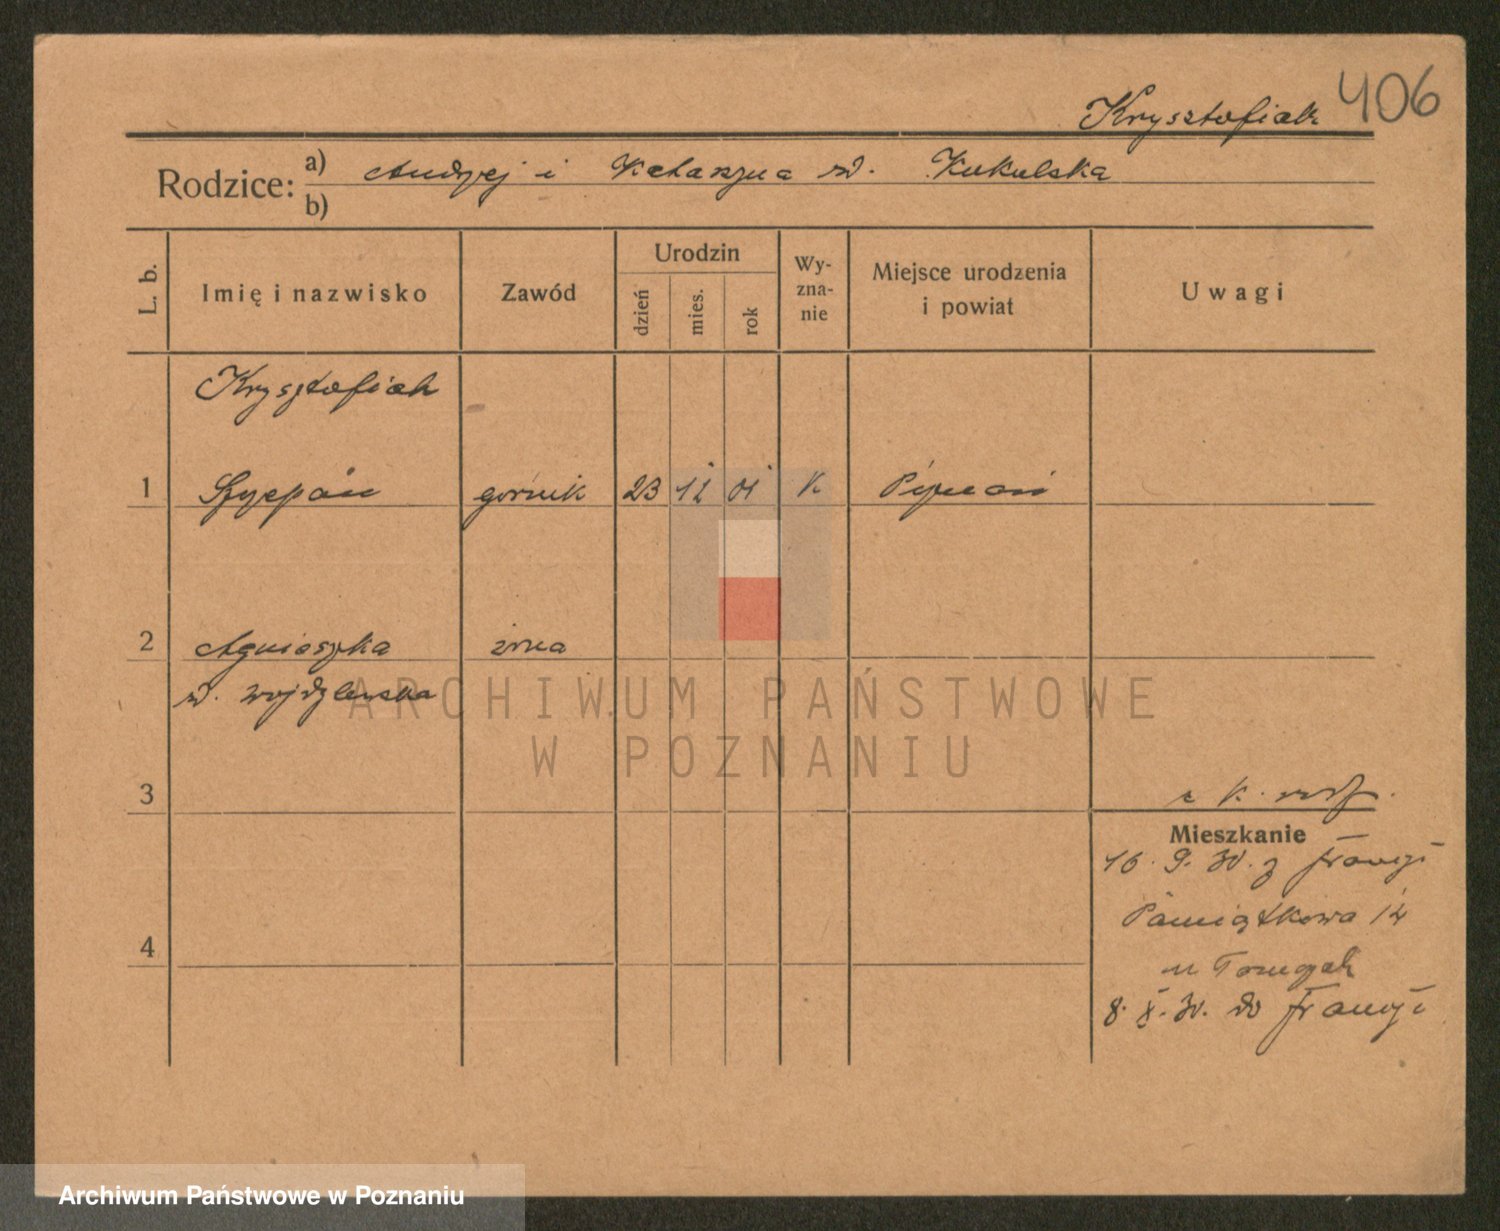 406
Krysztofiak
Rodzice: a) Andrzej i Katarzyna
Kukulska
b)
L. b.
Imię i nazwisko
Zawód
Urodzin
dzień
mies.
rok
Wy-
zna-
nie
Miejsce urodzenia
i powiat
Uwagi
Krysztofiak
1 Szczepan górnik 23 12 01 K
2 Agnieszka żona
3
Mieszkanie
16. 9. 30. z Francji
Pamiątkowa
4
8. X. 30. do Francji
ARCHIWUM PAŃSTWOWE
W POZNANIU
Archiwum Państwowe w Poznaniu